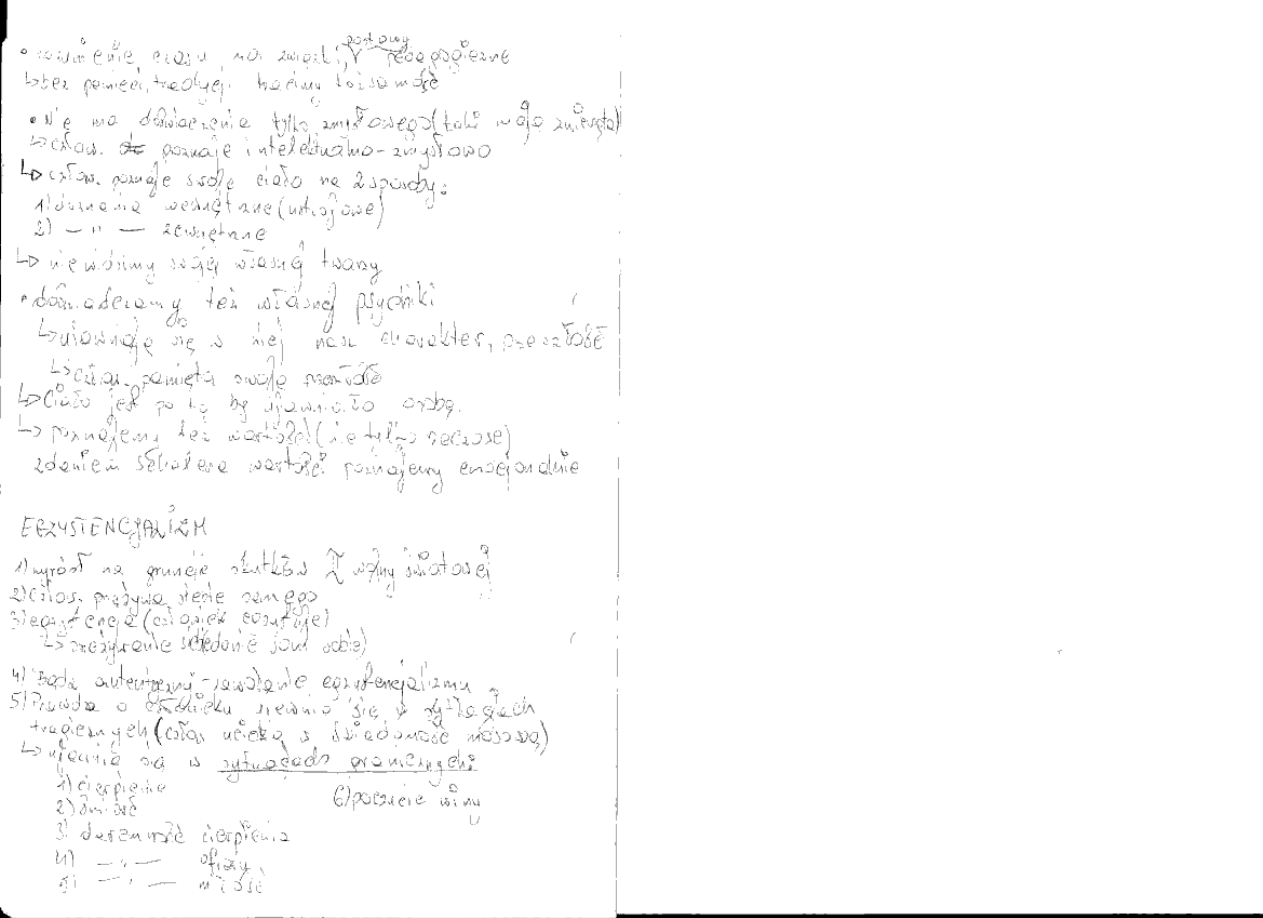 postawy
• czasu na związki, V pedagogiczne
↳ bez pamięci, tradycji tracimy tożsamość
• Nie ma doświadczenia tylko zmysłowego (takie mają zwierzęta)
↳ człow. poznaje intelektualno-zmysłowo
↳ człow. poznaje swoje ciało na 2 sposoby:
1) doznania wewnętrzne (ustrojowe)
2) — " — zewnętrzne
↳ nie widzimy swojej własnej twarzy
• doświadczamy też własnej psychiki
↳ ujawniają się w niej nasz charakter, przeszłość
↳ człow. pamięta swoją przeszłość
↳ Ciało jest po to by ujawniało osobę.
↳ poznajemy też wartości (nie tylko rzeczowe)
zdaniem Schelera wartości poznajemy emocjonalnie
EGZYSTENCJALIZM
1) wyrósł na gruncie skutków I wojny światowej
2) Człow. przeżywa siebie samego
3) egzystencja (człowiek egzystuje)
↳ przeżywanie siebie
4) Bądź autentyczny - zawołanie egzystencjalizmu
5) Prawda o człowieku ujawnia się w sytuacjach
tragicznych (człow. ucieka w świadomość masową)
↳ ujawnia się w sytuacjach granicznych:
1) cierpienie
2) śmierć
3) daremność cierpienia
4) — " — ofiary
5) — " — miłość
6) poczucie winy